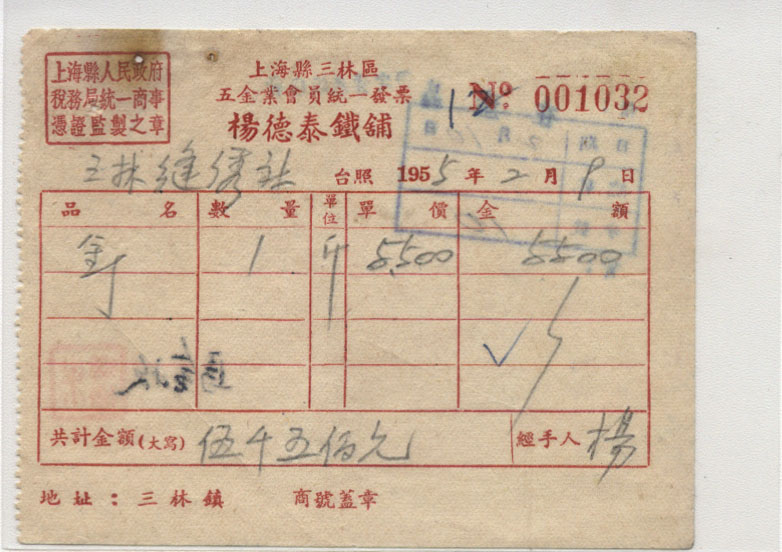 上海縣人民政府
稅務局統一商事
憑證監製之章
上海縣三林區
五金業會員統一發票
楊德泰鐵舖
12
№ 001032
三林縫綉社 台照 1955年2月9日
品名 數量 單位 單價 金額
釘 1 斤 5500 5500
共計金額(大寫) 伍千五佰元 經手人 楊
地址：三林鎮 商號蓋章